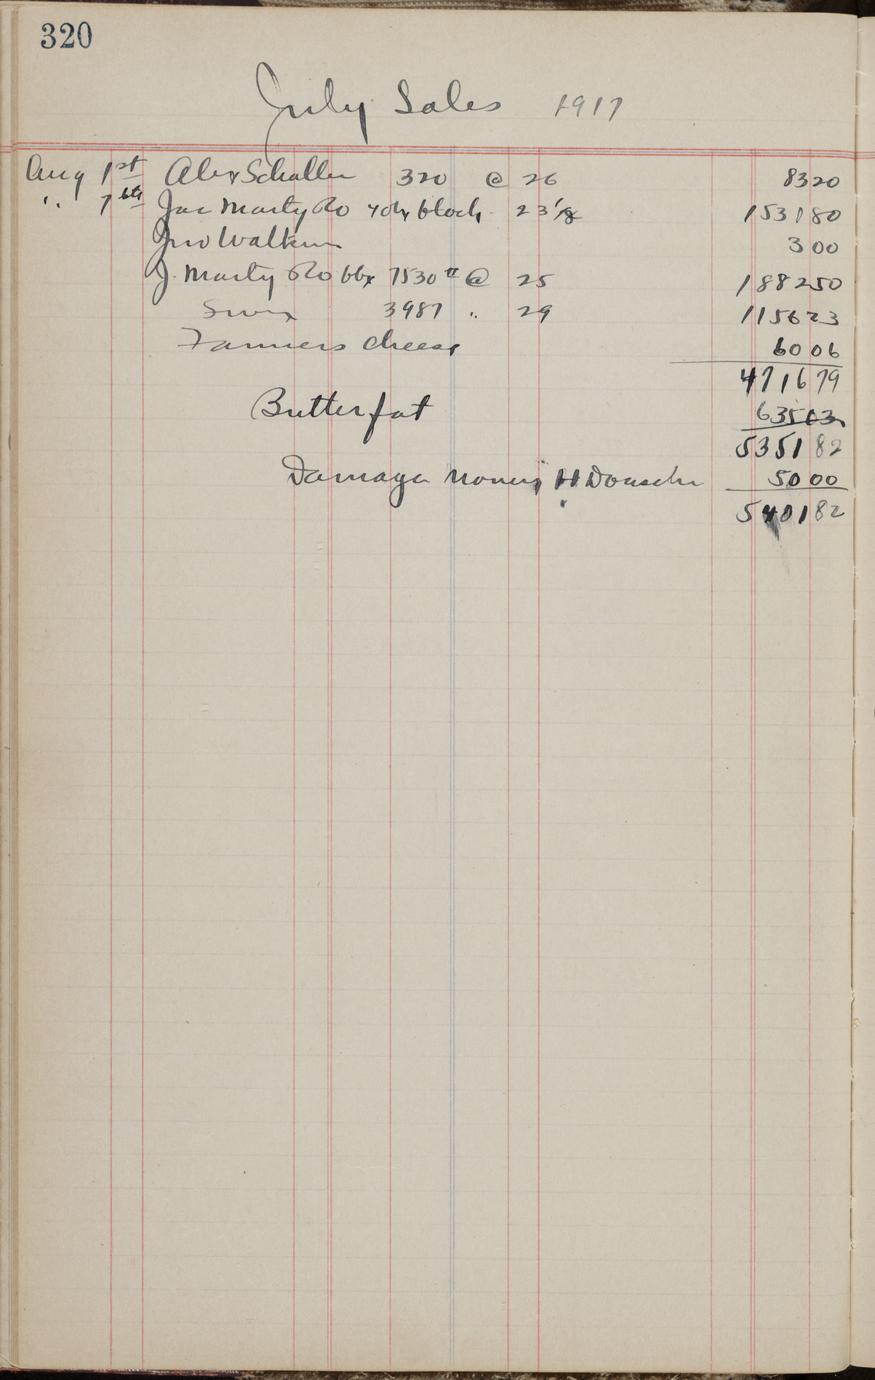 320
July Sales 1917
Aug 1st Alex Schaller 320 @ 26 8320
" 7th Jac Marty Co block 23 1/8 153180
Jno Walkum 300
J. Marty Co 7530 # @ 25 188250
Swiss 3987 " 29 115623
Farmers Cheese 6006
471679
Butterfat 63503
535182
Damage money H 5000
540182